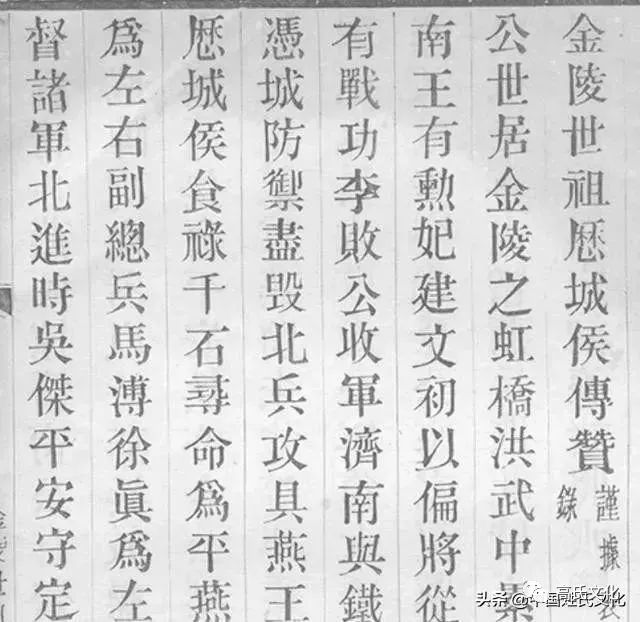 金陵世祖厯城侯傳贊 謹據
錄
公世居金陵之虹橋洪武中
南王有勲妃建文初以偏將從
有戰功李敗公收軍濟南與鐵
憑城防禦盡毀北兵攻具燕王
厯城侯食祿千石尋命爲平燕
爲左右副總兵馬溥徐眞爲左
督諸軍北進時吳傑平安守定
高氏文化
头条 @中国姓氏文化